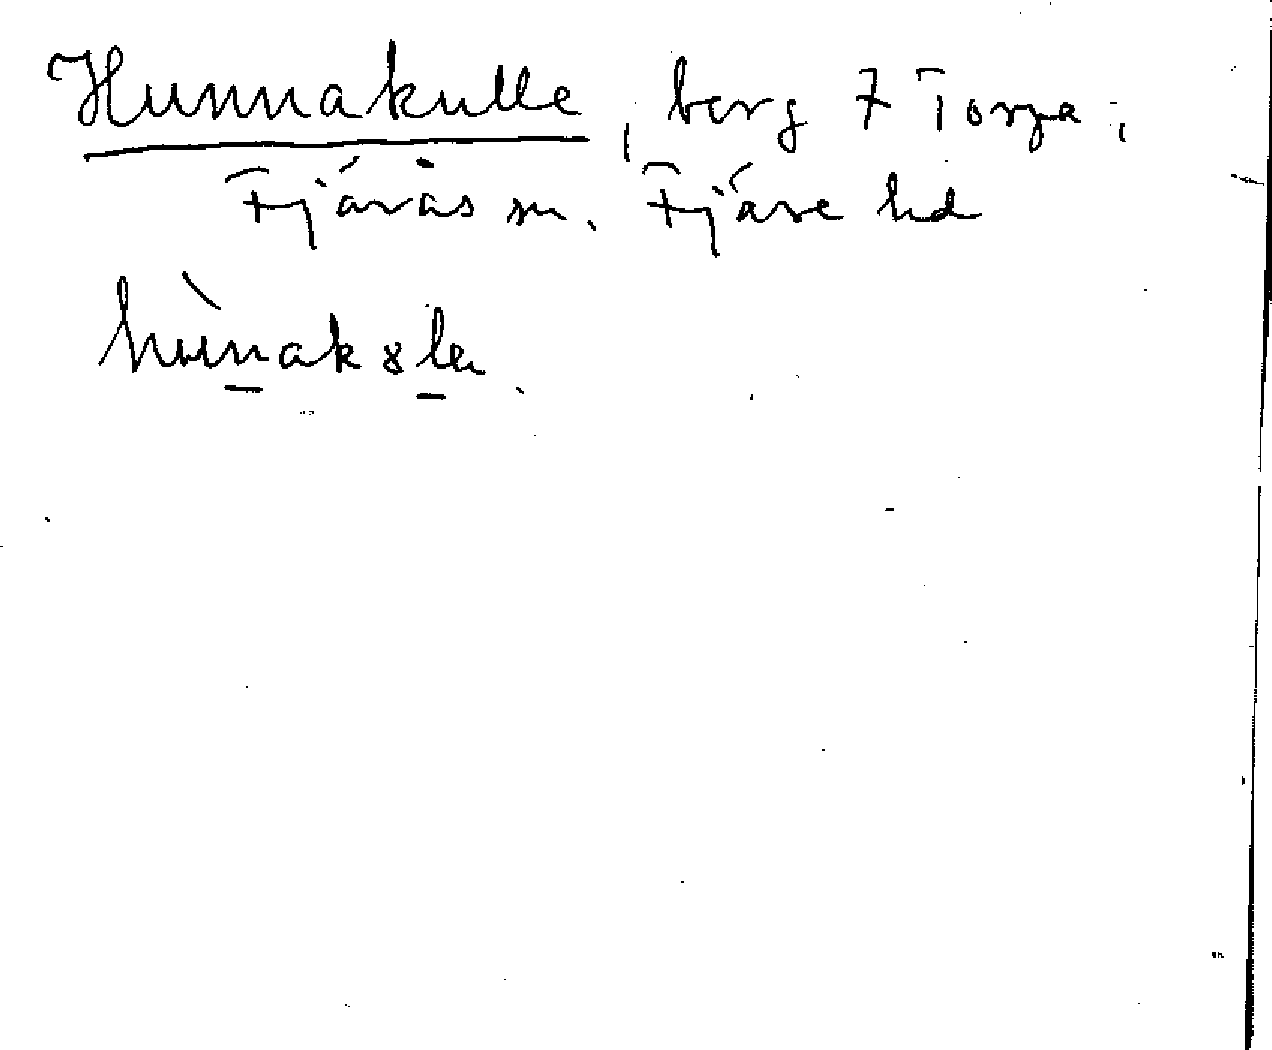 Hunnakulle, berg 7 Torpa;
Fjärås sn. Fjäre hd